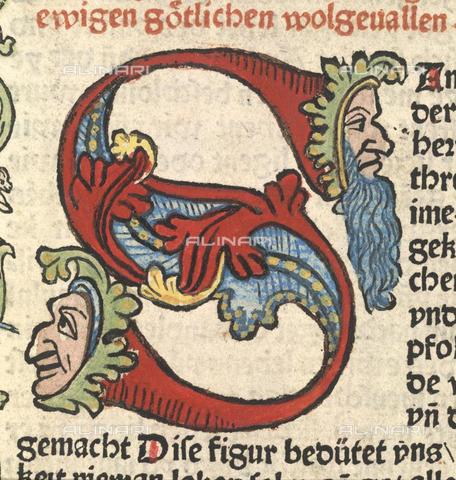 ewigen götlichen wolgeuallen
S
An
der
her
thro
ime
gek
chen
vnd
pfol
de
vn̄ d
gemacht Dise figur bedütet vns
ALINARI
ALINARI
ALINARI